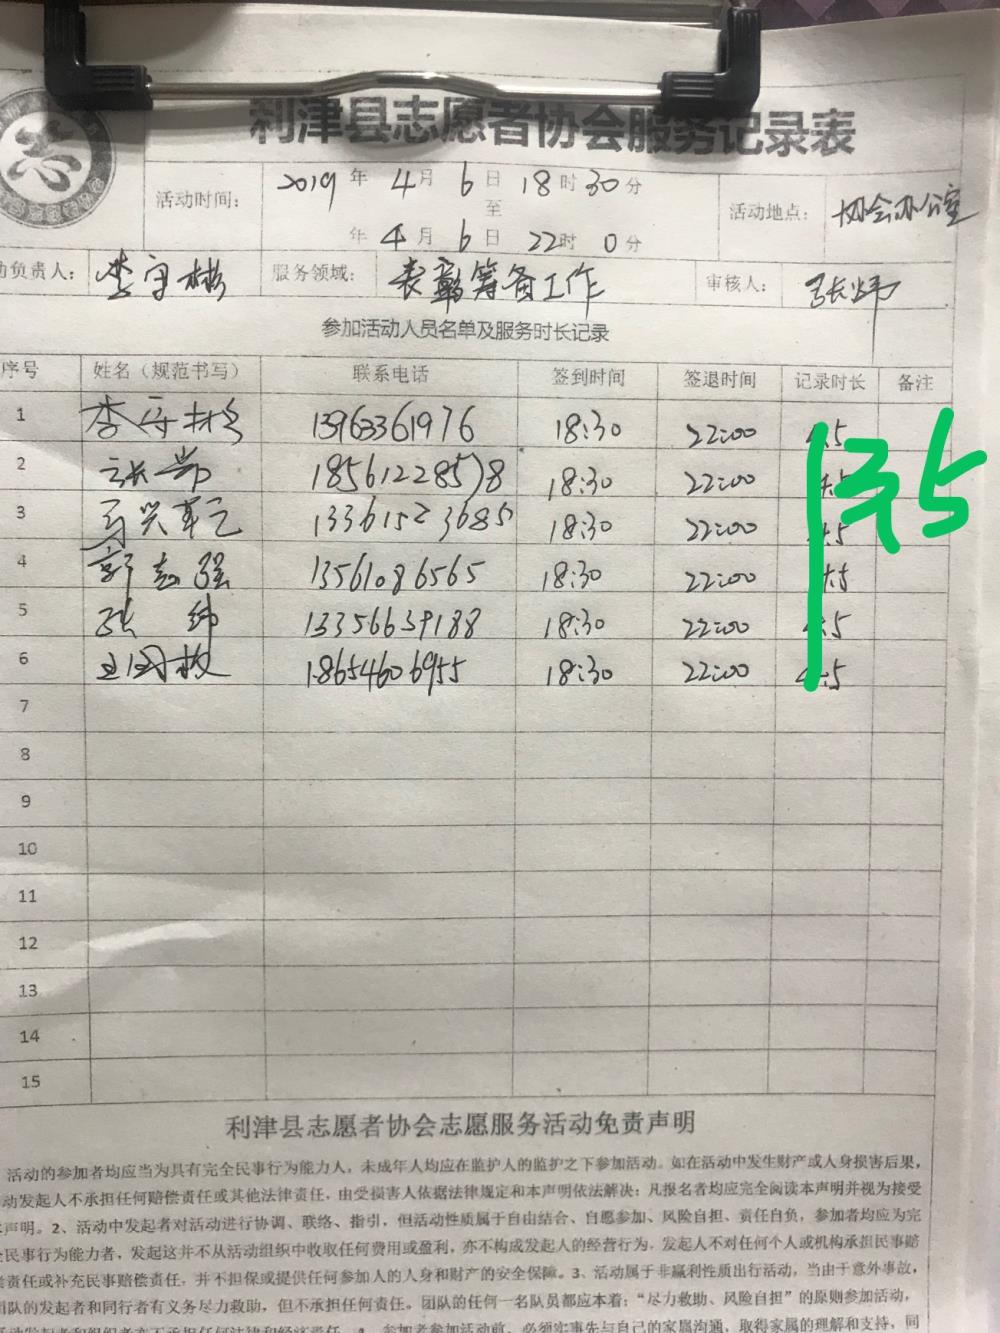 利津县志愿者协会服务记录表
活动时间：
2019年4月6日18时30分
至
年4月6日22时0分
活动地点：协会办公室
动负责人：李守彬
服务领域：表彰筹备工作
审核人：张炜
参加活动人员名单及服务时长记录
序号 姓名（规范书写） 联系电话 签到时间 签退时间 记录时长 备注
1 李守彬 13963361976 18:30 22:00 4.5
2 18561228578 18:30 22:00 4.5
3 13361523685 18:30 22:00 4.5
4 郭志强 13561086565 18:30 22:00 4.5
5 张 13356639188 18:30 22:00 4.5
6 王国放 18654606955 18:30 22:00 4.5
3.5
7
8
9
10
11
12
13
14
15
利津县志愿者协会志愿服务活动免责声明
活动的参加者均应当为具有完全民事行为能力人，未成年人均应在监护人的监护之下参加活动。如在活动中发生财产或人身损害后果，
动发起人不承担任何赔偿责任或其他法律责任，由受损害人依据法律规定和本声明依法解决；凡报名者均应完全阅读本声明并视为接受
声明。2、活动中发起者对活动进行协调、联络、指引，但活动性质属于自由结合、自愿参加、风险自担、责任自负，参加者均应为完
民事行为能力者，发起这并不从活动组织中收取任何费用或盈利，亦不构成发起人的经营行为，发起人不对任何个人或机构承担民事赔
偿责任或补充民事赔偿责任，并不担保或提供任何参加人的人身和财产的安全保障。3、活动属于非赢利性质出行活动，当由于意外事故，
团队的发起者和同行者有义务尽力救助，但不承担任何责任。团队的任何一名队员都应本着：“尽力救助、风险自担”的原则参加活动，
活动发起者和组织者亦不承担任何法律和经济责任。4、参加者参加活动前，必须实事先与自己的家属沟通，取得家属的理解和支持，同